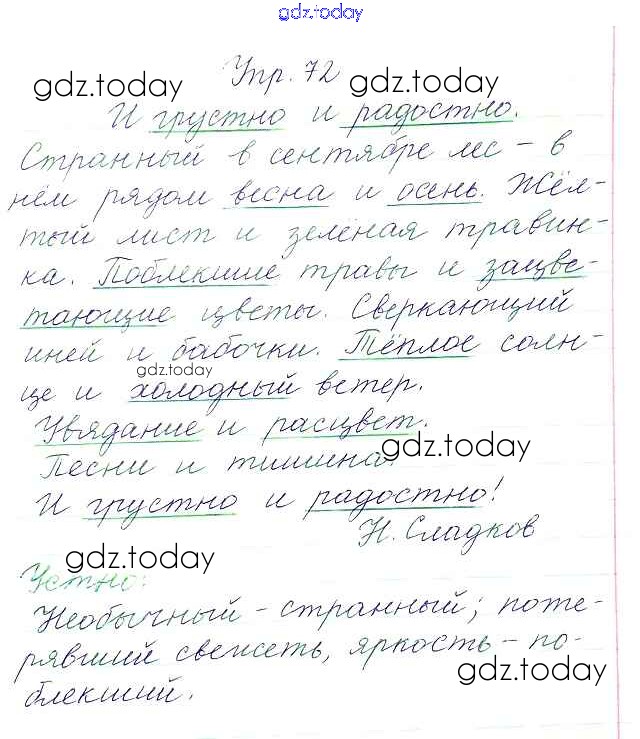 gdz.today
gdz.today Упр. 72 gdz.today
И грустно и радостно.
Странный в сентябре лес – в
нём рядом весна и осень. Жёл-
тый лист и зелёная травин-
ка. Поблекшие травы и зацве-
тающие цветы. Сверкающий
иней и бабочки. Тёплое солн-
gdz.today
це и холодный ветер.
Увядание и расцвет.
gdz.today
Песни и тишина.
И грустно и радостно!
Н. Сладков
gdz.today
Устно:
Необычный – странный; поте-
рявший свежеть, яркость – по-
gdz.today
блекший.